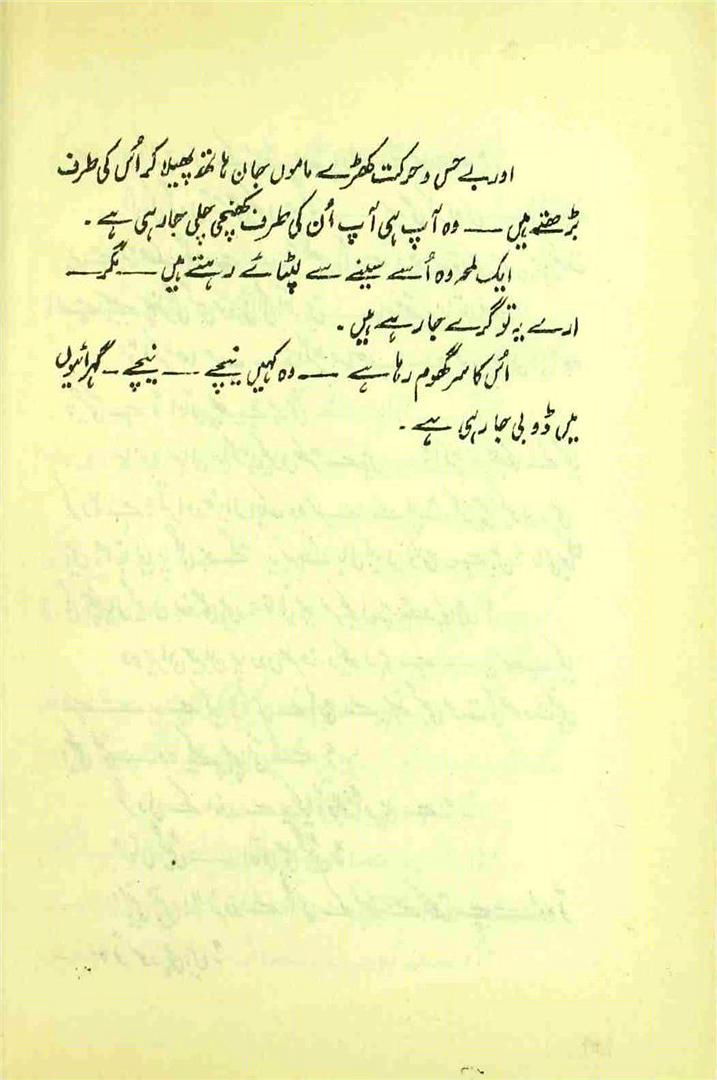 اور بے حس و حرکت کھڑے ماموں جان ہاتھ پھیلا کر اُس کی طرف
بڑھتے ہیں ـــ وہ آپ ہی آپ اُن کی طرف کھنچی چلی جا رہی ہے ۔
ایک لمحہ وہ اُسے سینے سے لپٹائے رہتے ہیں ـــ مگر ـــ
ارے یہ تو گرے جا رہے ہیں ۔
اُس کا سر گھوم رہا ہے ـــ وہ کہیں نیچے ـــ نیچے ـ گہرائیوں
میں ڈوبی جا رہی ہے ۔